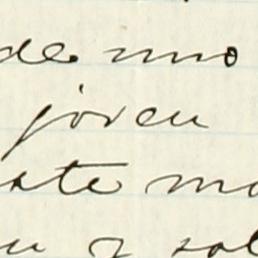 de uno
joven
ate mo
u y sol